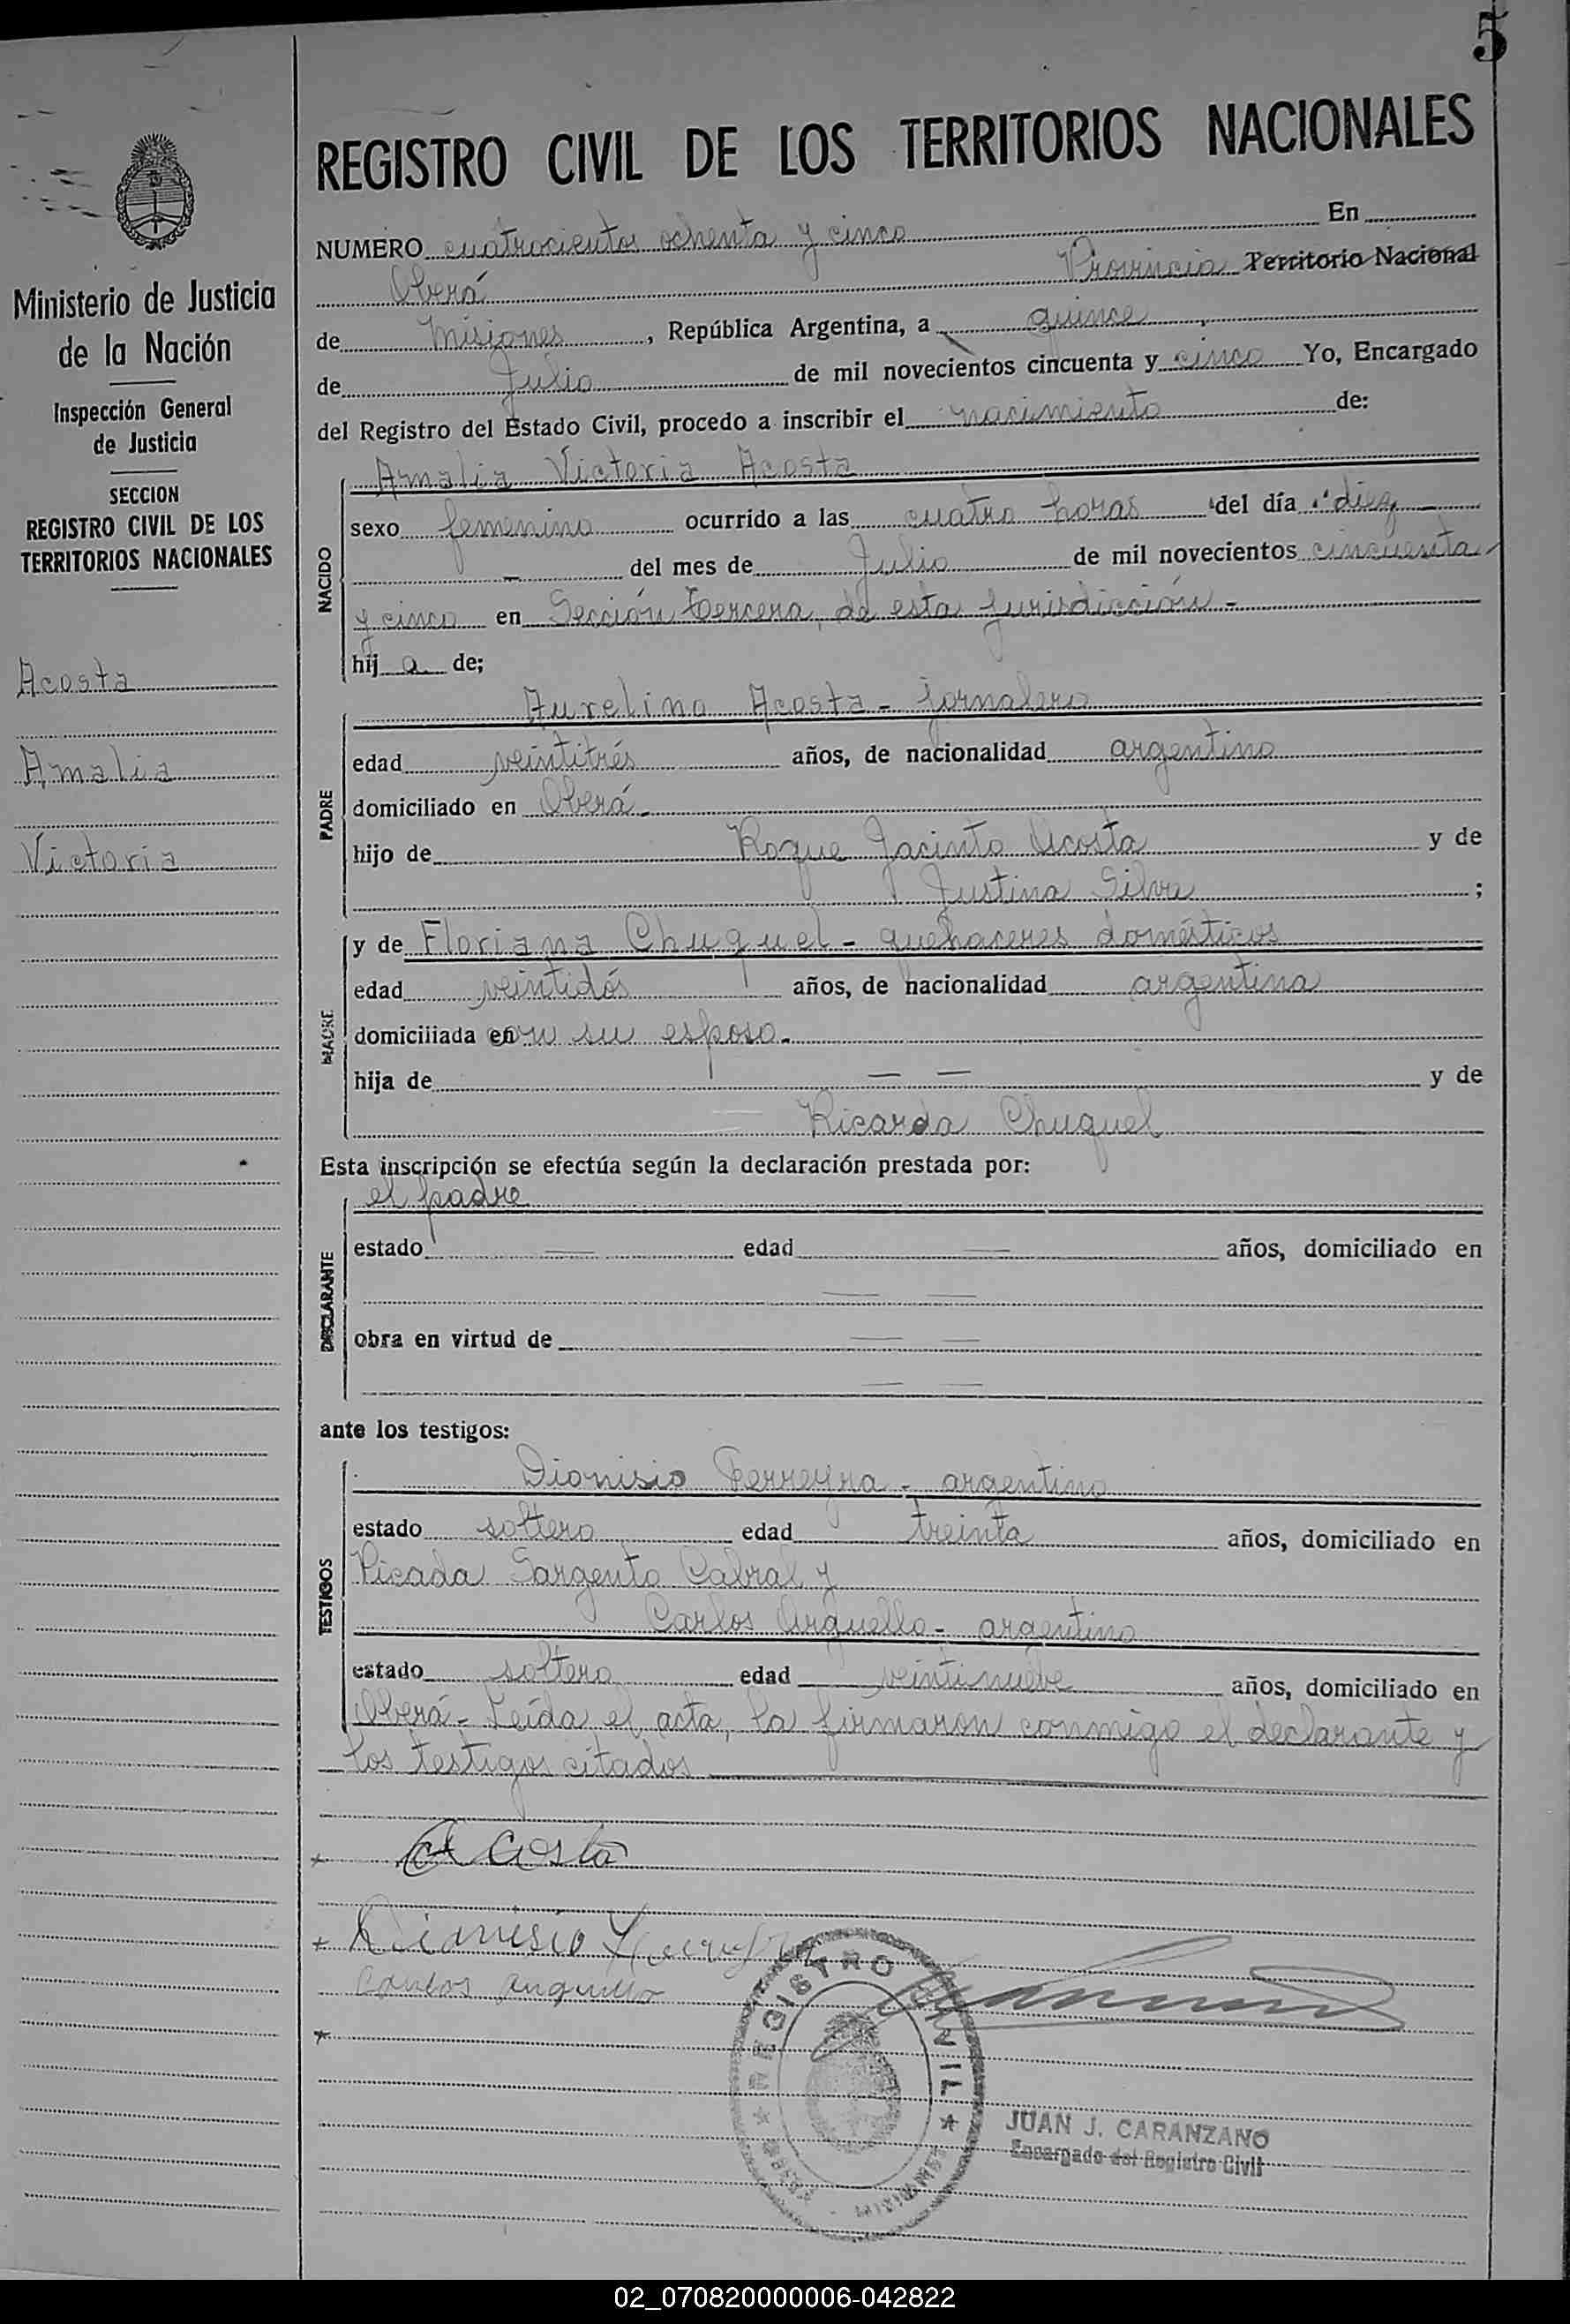 5
REGISTRO CIVIL DE LOS TERRITORIOS NACIONALES
Ministerio de Justicia
de la Nación
Inspección General
de Justicia
SECCION
REGISTRO CIVIL DE LOS
TERRITORIOS NACIONALES
Acosta
Amalia
Victoria
NUMERO cuatrocientos ochenta y cinco En
Oberá Provincia Territorio Nacional
de Misiones, República Argentina, a quince
de Julio de mil novecientos cincuenta y cinco Yo, Encargado
del Registro del Estado Civil, procedo a inscribir el nacimiento de:
NACIDO
Amalia Victoria Acosta
sexo femenino ocurrido a las cuatro horas del día diez
- del mes de Julio de mil novecientos cincuenta
y cinco en Sección tercera, de esta jurisdicción -
hij a de;
PADRE
Aurelino Acosta - jornalero
edad veintitrés años, de nacionalidad argentino
domiciliado en Oberá -
hijo de Roque Jacinto Acosta y de
Justina Silva ;
MADRE
y de Floriana Chuquel - quehaceres domésticos
edad veintidós años, de nacionalidad argentina
domiciliada en con su esposo.
hija de — — y de
Ricarda Chuquel
Esta inscripción se efectúa según la declaración prestada por:
DECLARANTE
el padre
estado — edad — años, domiciliado en
— —
obra en virtud de — —
— —
ante los testigos:
TESTIGOS
Dionisio Ferreyra - argentino
estado soltero edad treinta años, domiciliado en
Picada Sargento Cabral y
Carlos Arguello - argentino
estado soltero edad veintinueve años, domiciliado en
Oberá - Leída el acta, la firmaron conmigo el declarante y
los testigos citados
A Costa
Dionisio
Carlos Arguello
REGISTRO CIVIL
OBERA - MISIONES
JUAN J. CARANZANO
Encargado del Registro Civil
02_070820000006-042822